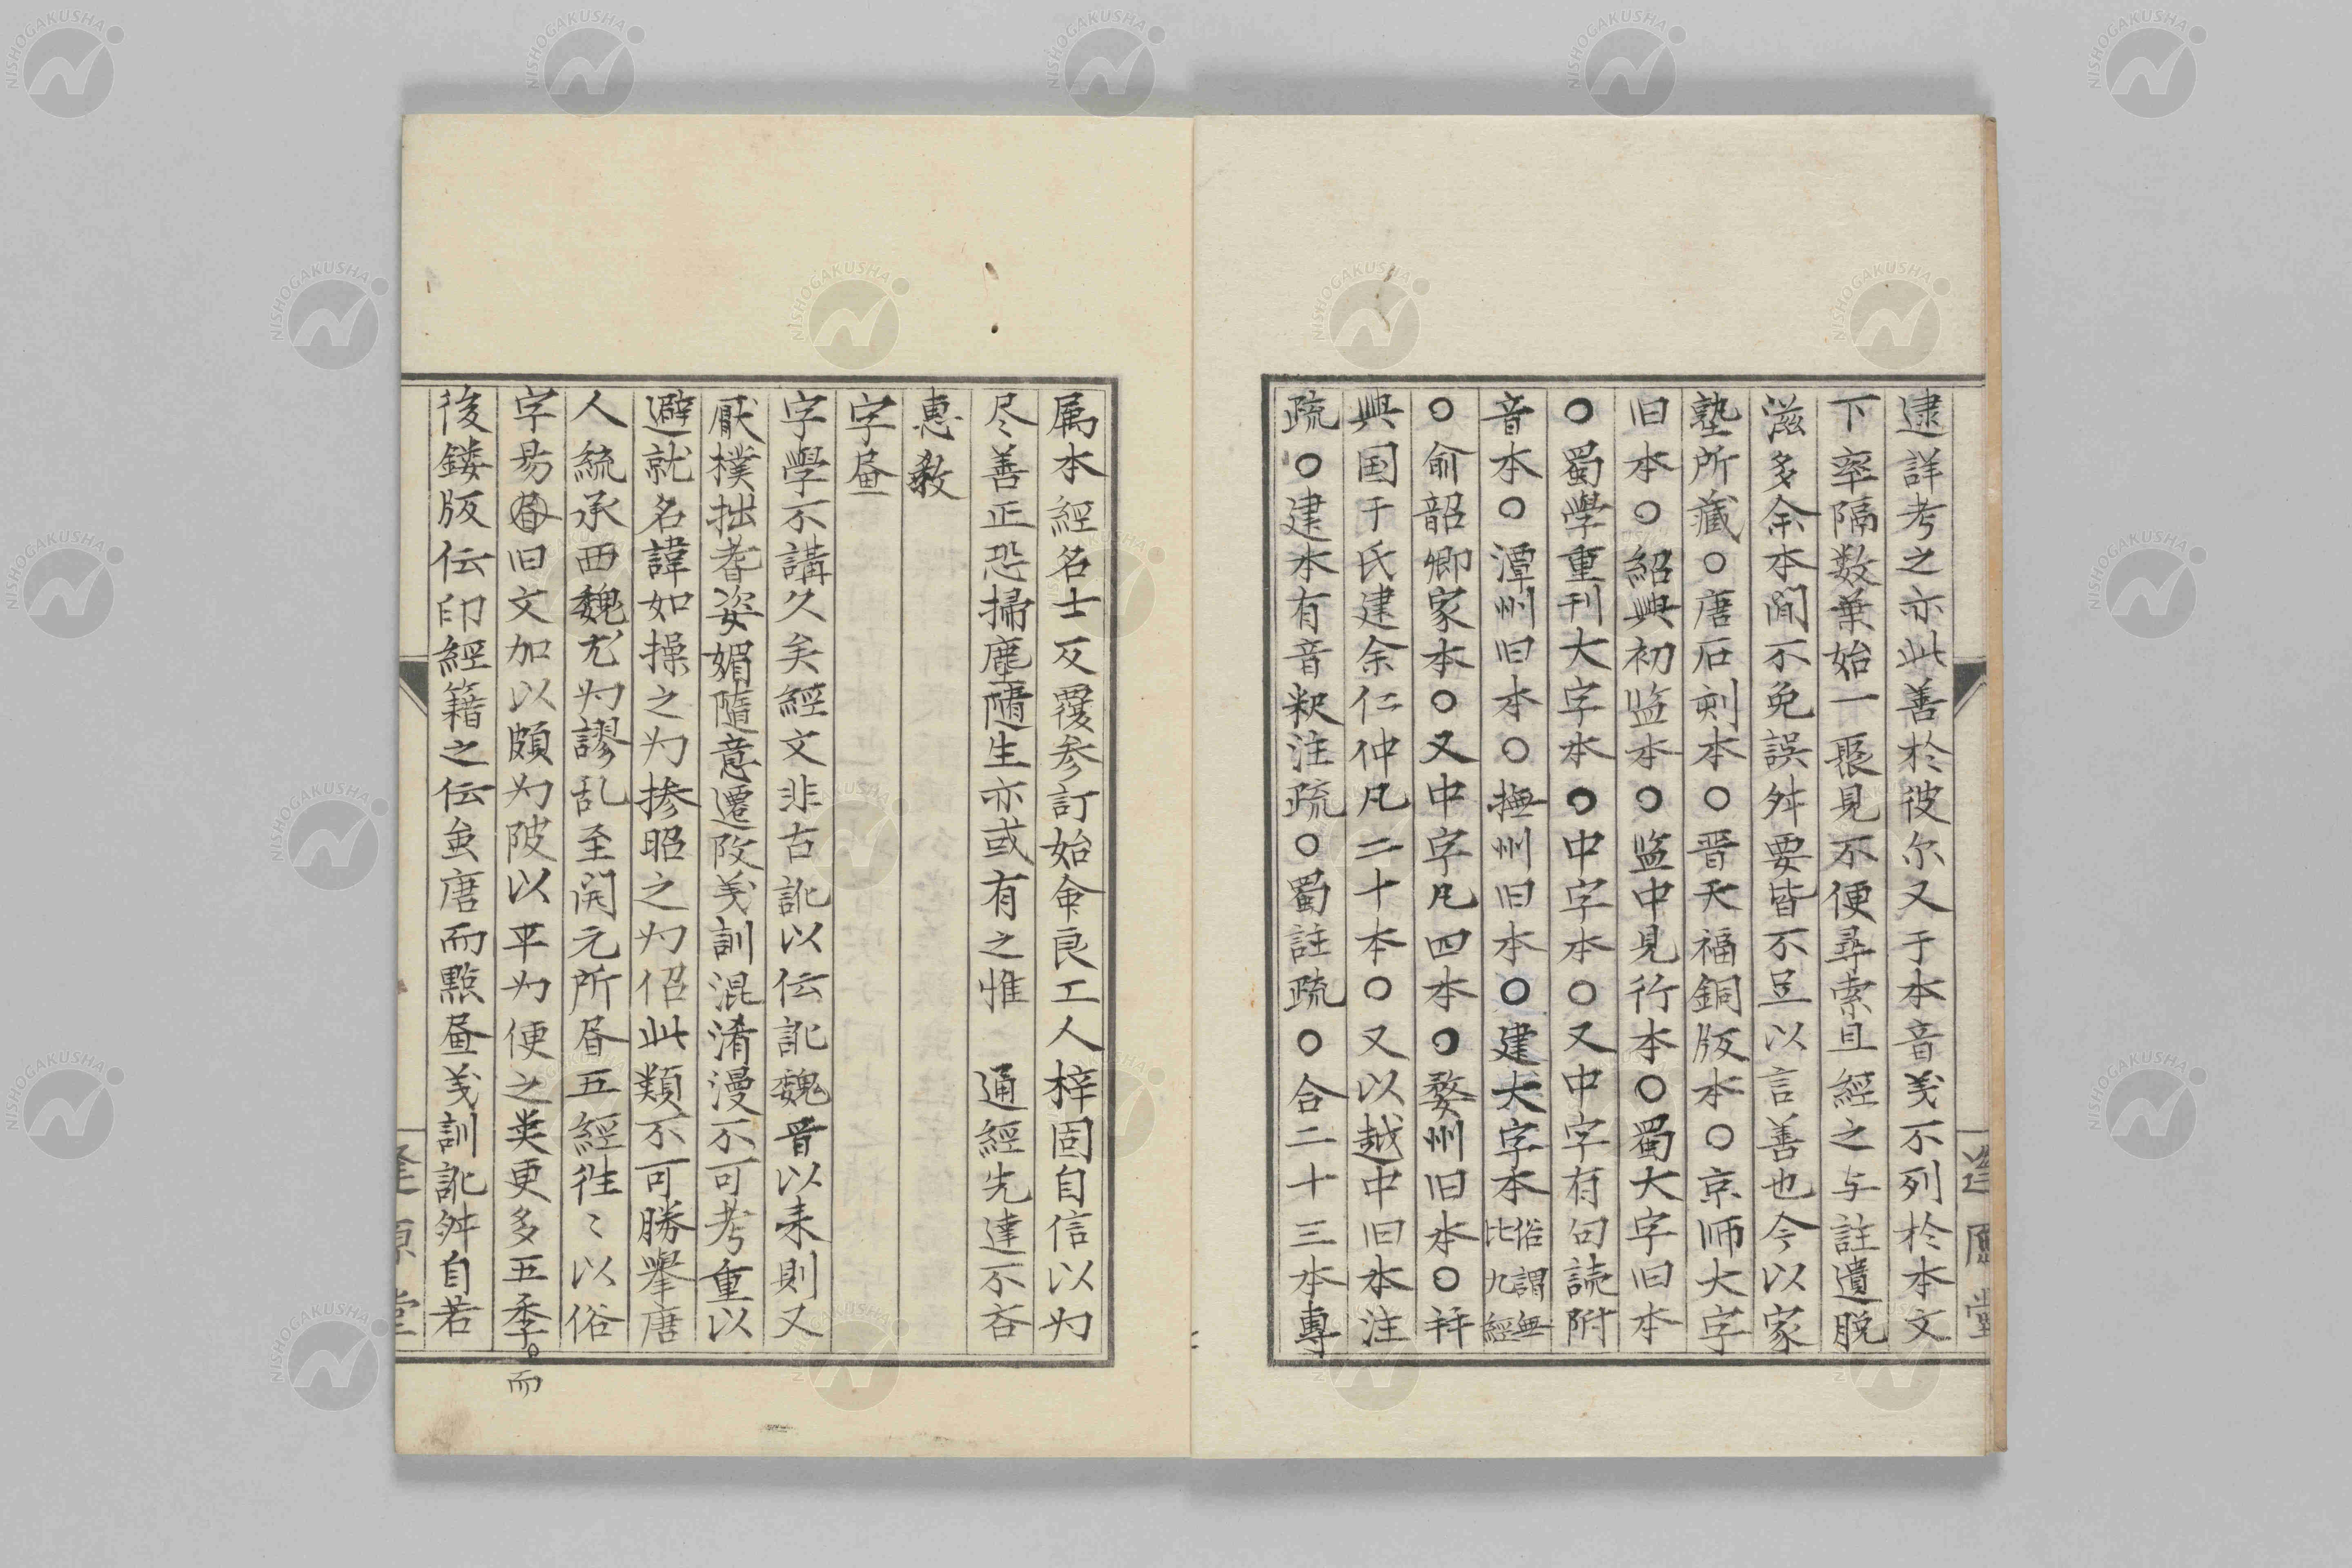 逮詳考之亦此善於彼尔又于本音义不列於本文
下率隔数葉始一聚見不便尋索且經之与註遺脱
滋多余本間不免誤舛要皆不𠯁以言善也今以家
塾所藏○唐石刻本○晋天福銅版本○京师大字
旧本○紹興初监本○监中見行本○蜀大字旧本
○蜀學重刊大字本○中字本○又中字有句読附
音本○潭州旧本○撫州旧本○建大字本俗謂無比九經
○俞韶卿家本○又中字凡四本○婺州旧本○并
興国于氏建余仁仲凡二十本○又以越中旧本注
疏○建本有音釈注疏○蜀註疏○合二十三本專
属本經名士反覆参訂始命良工人梓固自信以为
尽善正恐掃塵隨生亦或有之惟 通經先達不吝
惠教
字畫
字學不講久矣經文非古訛以伝訛魏晋以来則又
厭樸拙耆姿媚隨意遷改义訓混淆漫不可考重以
避就名諱如操之为掺昭之为佋此類不可勝舉唐
人統承西魏尤为謬乱至開元所書五經徃〻以俗
字易旧文加以頗为陂以平为便之类更多五季而
後鏤版伝印經籍之伝虽唐而點畫义訓訛舛自若
逢原堂
NISHOGAKUSHA